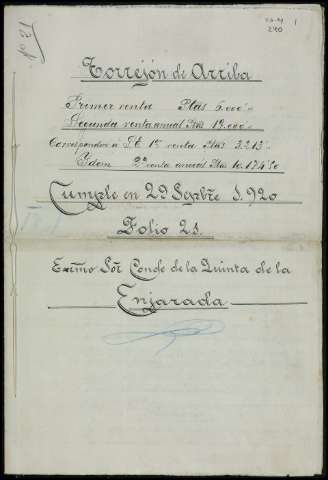 Nº 21
1
240
Torrejón de Arriba
Primer renta Ptas 6.000'=
Segunda renta anual Ptas 19.000'=
Corresponde a 1ª renta Ptas 3.213'=
Idem 2ª renta anual Ptas 10.174'50
Cumple en 29 Septbre 1.920
Folio 21.
Excmo Sor Conde de la Quinta de la
Enjarada